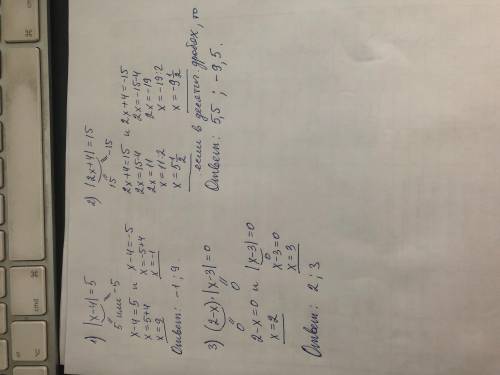 1) |x-4|=5
5 или -5
x-4=5 и x-4=-5
x=5+4 x=-5+4
x=9 x=-1
Ответ: -1; 9.
2) |2x+4|=15
15 -15
2x+4=15 и 2x+4=-15
2x=15-4 2x=-15-4
2x=11 2x=-19
x=11:2 x=-19:2
x=5 1/2 x=-9 1/2
если в десятич. дробях, то
Ответ: 5,5 ; -9,5.
3) (2-x)·|x-3|=0
0 0
2-x=0 и |x-3|=0
x=2 0
x-3=0
x=3
Ответ: 2 ; 3